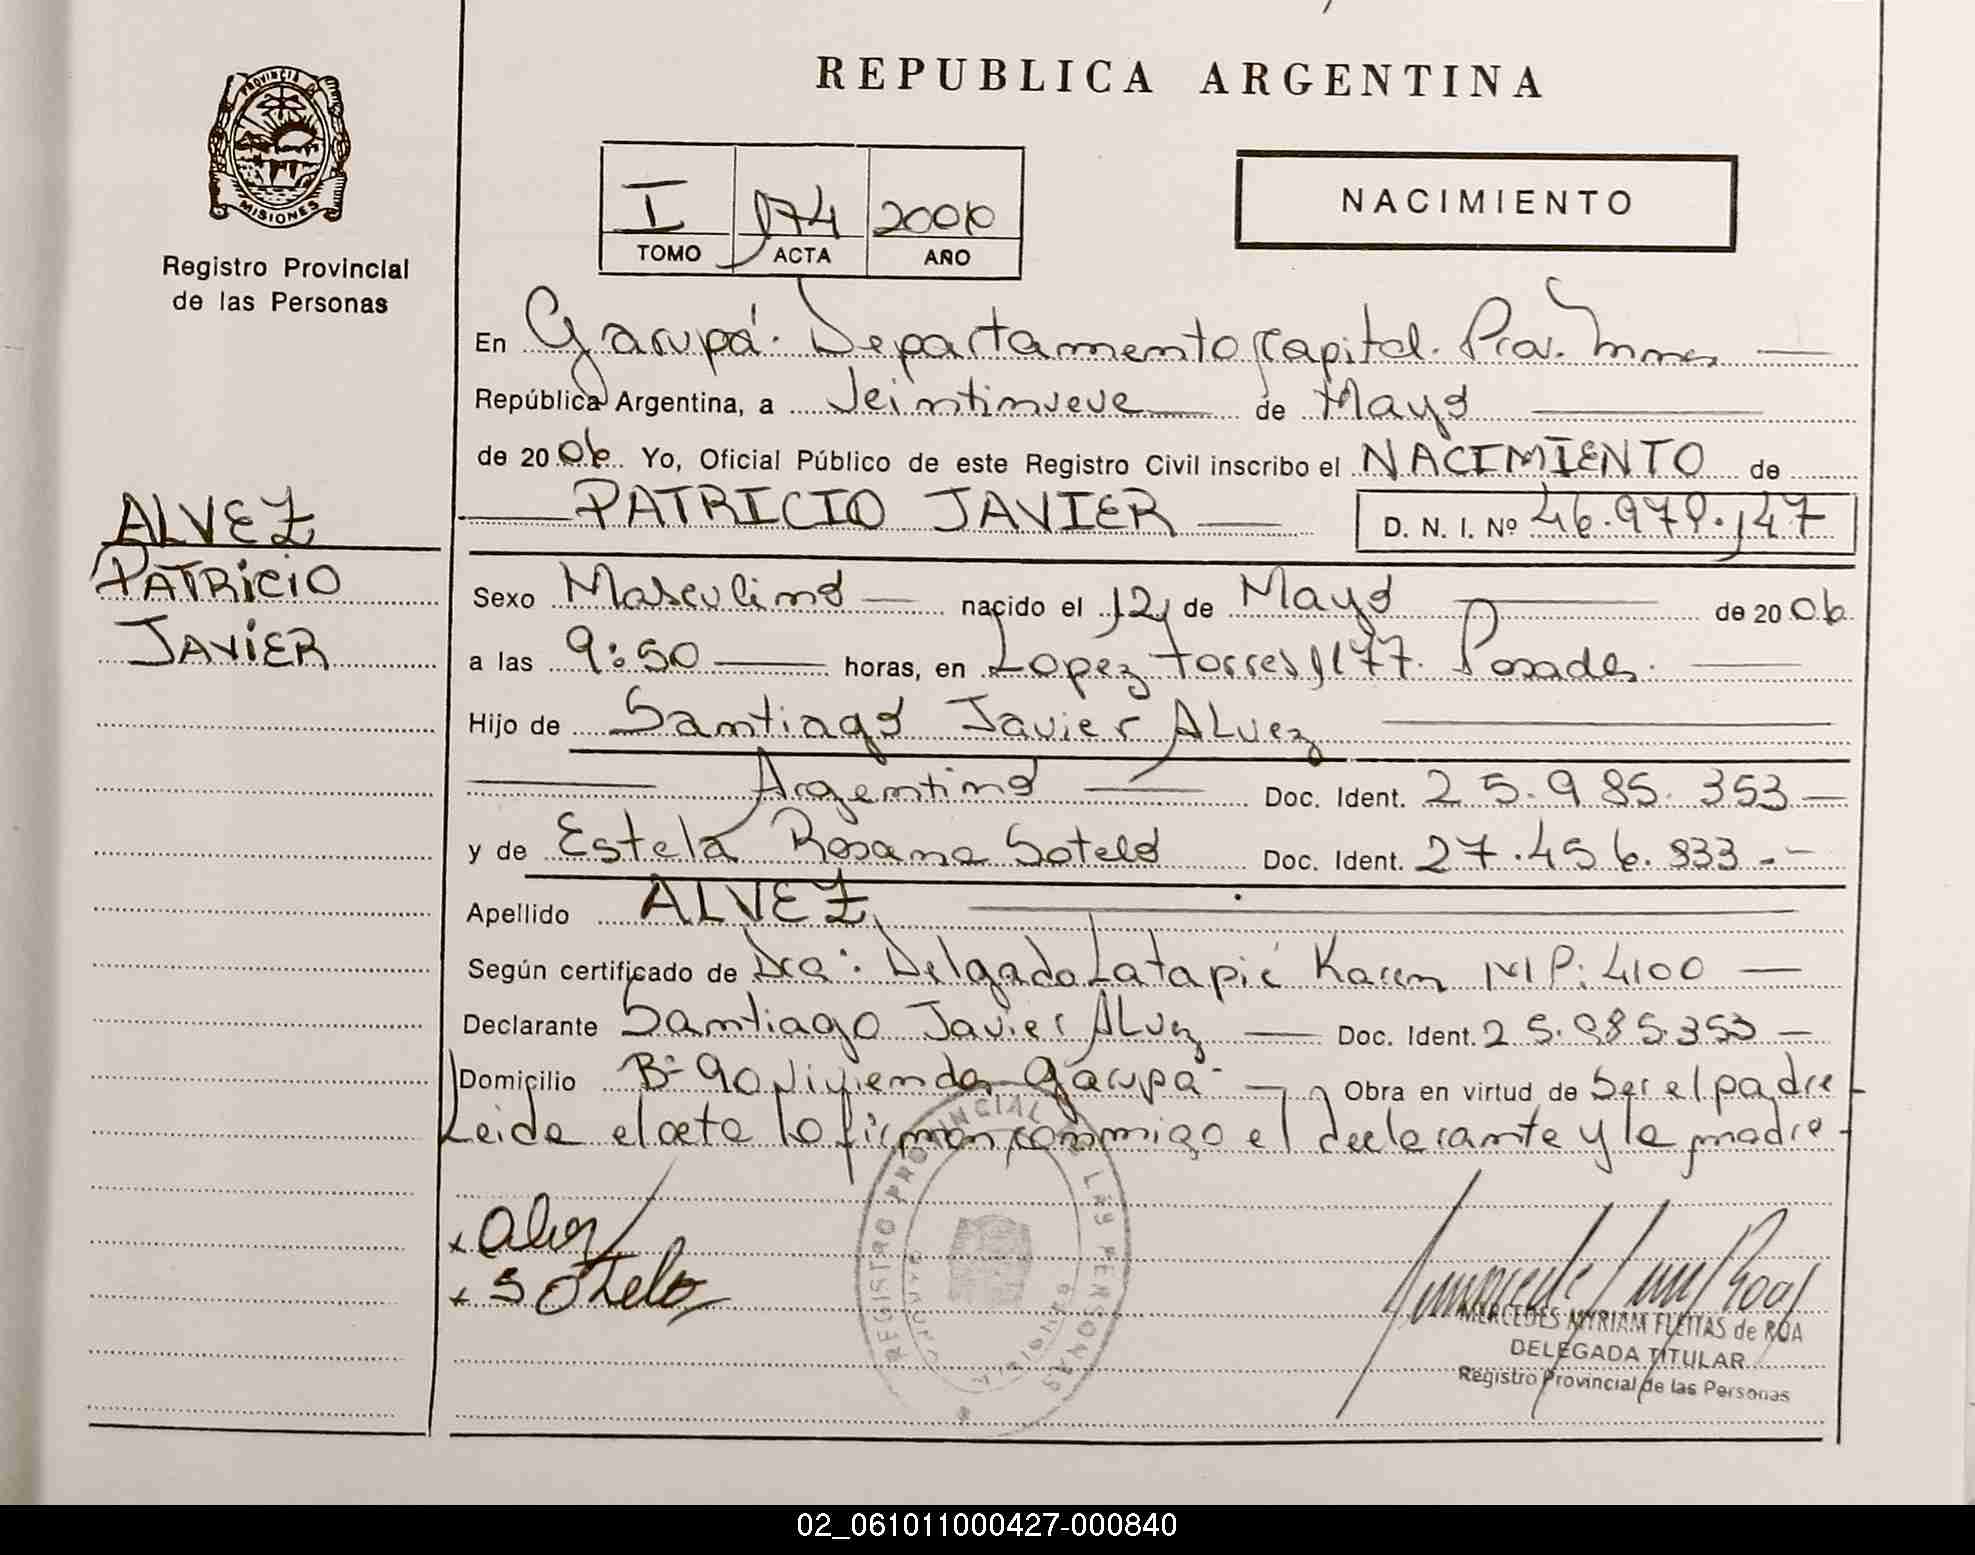 PROVINCIA DE
MISIONES
Registro Provincial
de las Personas
REPUBLICA ARGENTINA
I 174 2006
TOMO ACTA AÑO
NACIMIENTO
En Garupá. Departamento Capital. Prov. Mnes
República Argentina, a Veintinueve de Mayo
de 2006 Yo, Oficial Público de este Registro Civil inscribo el NACIMIENTO de
PATRICIO JAVIER D. N. I. Nº 46.979.147
ALVEZ
PATRICIO
JAVIER
Sexo Masculino nacido el 12 de Mayo de 2006
a las 9:50 horas, en Lopez Torres 1177. Posadas.
Hijo de Santiago Javier ALvez
Argentino Doc. Ident. 25.985.353
y de Estela Rosana Sotelo Doc. Ident. 27.456.833
Apellido ALVEZ
Según certificado de Dra: Delgado Latapié Karen MP: 4100
Declarante Santiago Javier ALvez Doc. Ident. 25.985.353
Domicilio Bº 90 Viviendas Garupá Obra en virtud de Ser el padre
Leida el acta lo firman conmigo el declarante y la madre
Alvez
Sotelo
REGISTRO PROVINCIAL DE LAS PERSONAS
MERCEDES MYRIAM FLEITAS de ROA
DELEGADA TITULAR
Registro Provincial de las Personas
02_061011000427-000840